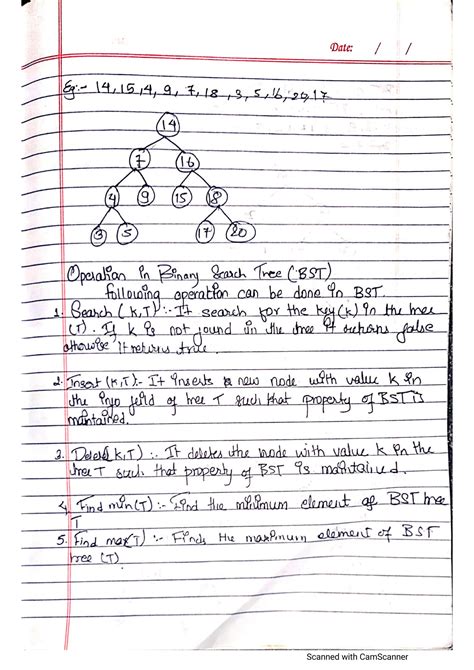 Date: / /
Eg:- 14, 15, 4, 9, 7, 18, 3, 5, 16, 20, 17
14
7 16
4 9 15 18
3 5 17 20
Operation in Binary Search Tree (BST)
following operation can be done in BST.
1. Search (K,T) :- It search for the key(k) in the tree
(T). If k is not found in the tree it returns false
otherwise it returns true.
2. Insert (K,T):- It inserts a new node with value k in
the info field of tree T such that property of BST is
maintained.
3. Delete(K,T) :- It deletes the node with value k in the
tree T such that property of BST is maintained.
4. Find min(T) :- Find the minimum element of BST tree
T
5. Find max(T) :- Finds the maximum element of BST
tree (T)
Scanned with CamScanner